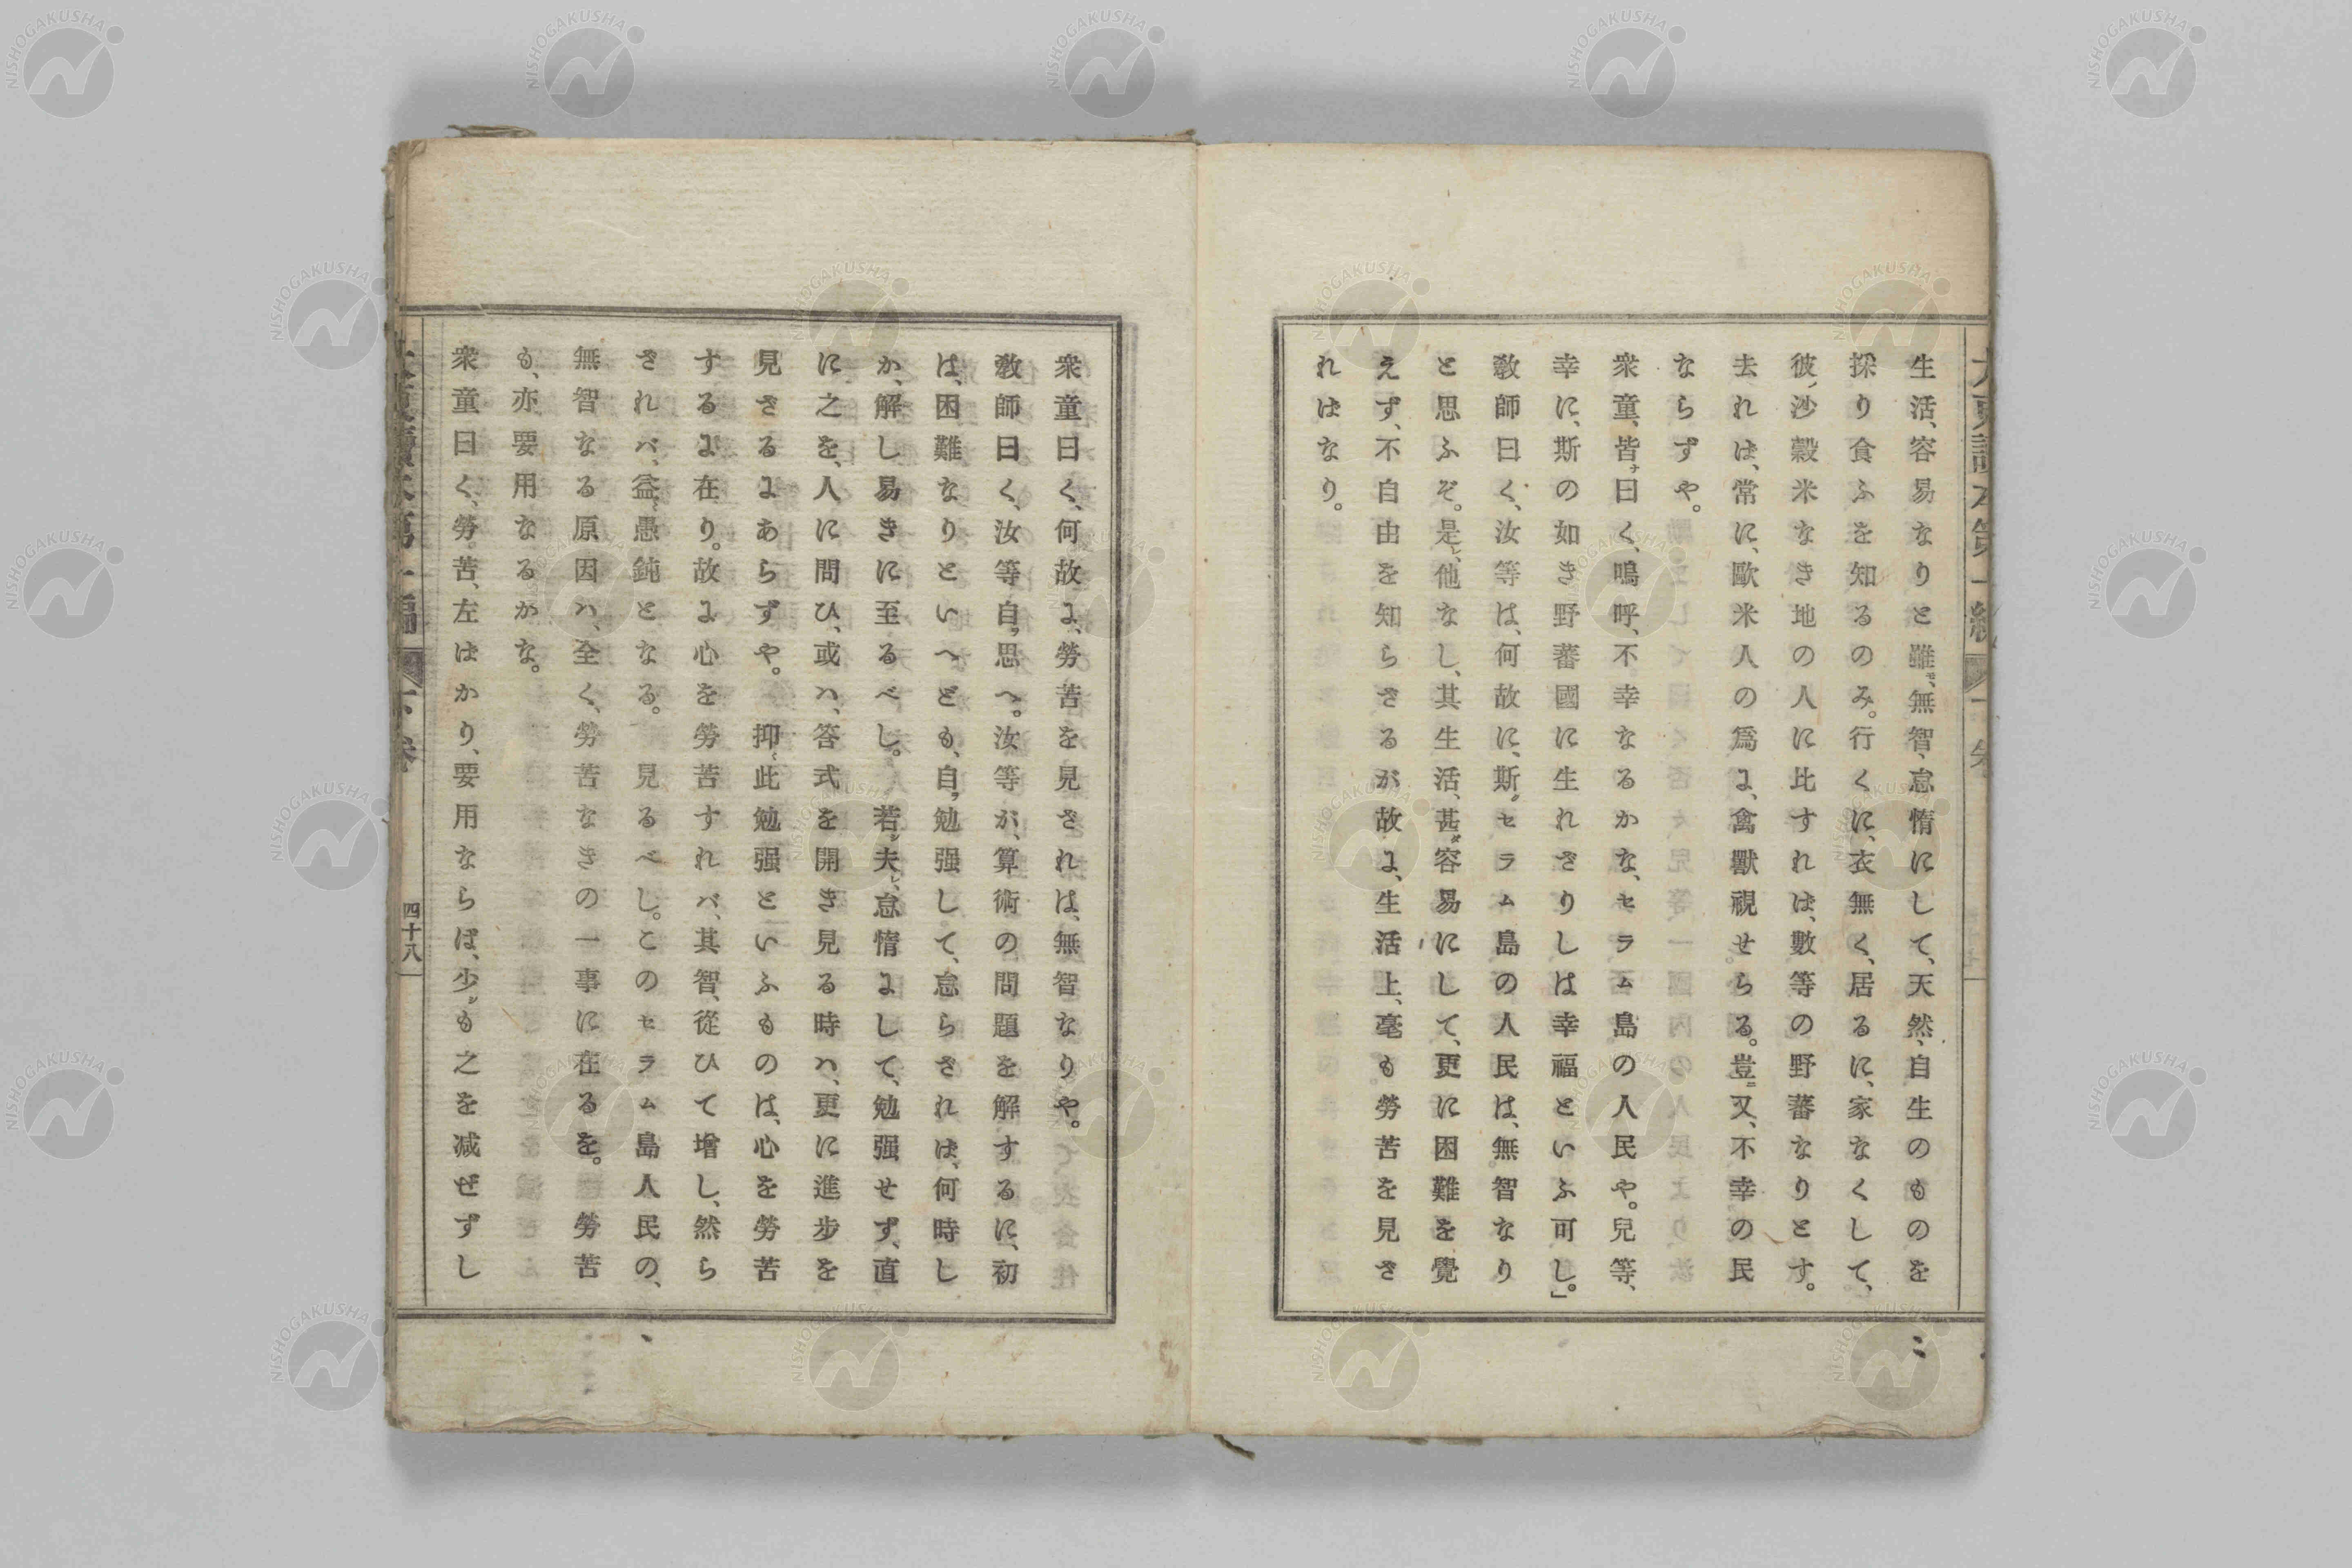 生活、容易なりと雖、無智、怠惰にして、天然、自生のものを
採り食ふを知るのみ。行くに、衣無く、居るに、家なくして、
彼ノ沙穀米なき地の人に比すれは、數等の野蕃なりとす。
去れは、常に、歐米人の爲に、禽獸視せらる。豈ニ又、不幸の民
ならずや。
衆童、皆ナ曰く、嗚呼、不幸なるかな、セラム島の人民や。兒等、
幸に、斯の如き野蕃國に生れさりしは幸福といふ可し。」
敎師曰く、汝等は、何故に、斯ク セラム島の人民は、無智なり
と思ふぞ。是レ、他なし、其生活、甚ダ容易にして、更に困難を覺
えず、不自由を知らさるが故に、生活上、毫も勞苦を見さ
れはなり。
衆童曰く、何故に、勞苦を見されは、無智なりや。
敎師曰く、汝等、自ラ思へ。汝等が、算術の問題を解するに、初
は、困難なりといへども、自ラ勉强して、怠らされは、何時し
か、解し易きに至るべし。若シ夫レ、怠惰にして、勉强せず、直
に之を、人に問ひ、或ハ、答式を開き見る時ハ、更に進步を
見さるにあらずや。抑、此勉强といふものは、心を勞苦
するに在り。故に心を勞苦すれバ、其智、從ひて增し、然ら
されバ、益、愚鈍となる。見るべし。このセラム島人民の、
無智なる原因ハ、全く、勞苦なきの一事に在るを。勞苦
も、亦要用なるかな。
衆童曰く、勞苦、左はかり、要用ならば、少シも之を減ぜずし
四十八